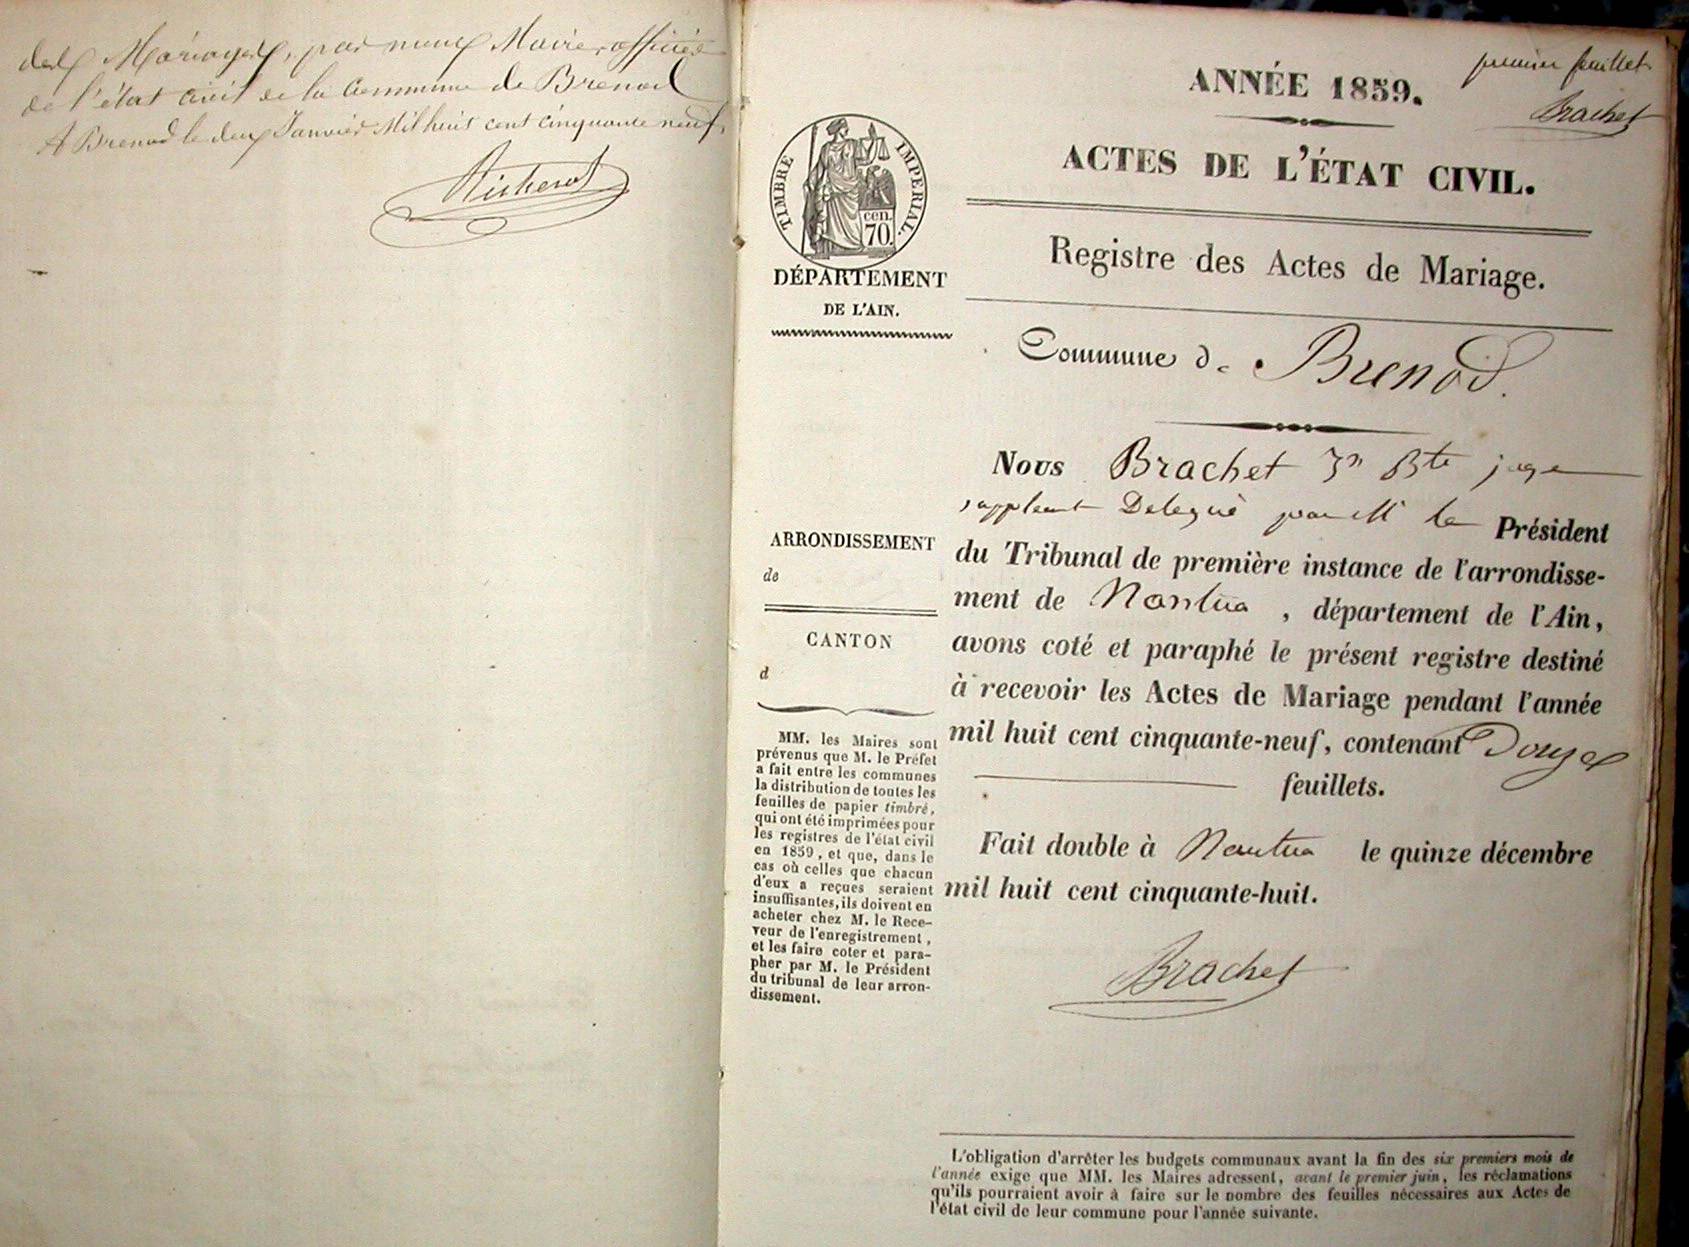 des Mariages, par nous Maire, officier
de l'état civil de la commune de Brenod
A Brenod le deux Janvier Mil huit cent cinquante neuf,
premier feuillet
Brachet
ANNÉE 1859.
ACTES DE L'ÉTAT CIVIL.
TIMBRE IMPERIAL.
cen.
70.
DÉPARTEMENT
DE L'AIN.
Registre des Actes de Mariage.
Commune de Brenod.
Nous Brachet Jn Bte juge
suppleant Delegué par M le Président
du Tribunal de première instance de l'arrondisse-
ment de Nantua, département de l'Ain,
avons coté et paraphé le présent registre destiné
à recevoir les Actes de Mariage pendant l'année
mil huit cent cinquante-neuf, contenant Douze
feuillets.
Fait double à Nantua le quinze décembre
mil huit cent cinquante-huit.
Brachet
ARRONDISSEMENT
de
CANTON
d
MM. les Maires sont
prévenus que M. le Préfet
a fait entre les communes
la distribution de toutes les
feuilles de papier timbré,
qui ont été imprimées pour
les registres de l'état civil
en 1859, et que, dans le
cas où celles que chacun
d'eux a reçues seraient
insuffisantes, ils doivent en
acheter chez M. le Rece-
veur de l'enregistrement,
et les faire coter et para-
pher par M. le Président
du tribunal de leur arron-
dissement.
L'obligation d'arrêter les budgets communaux avant la fin des six premiers mois de
l'année exige que MM. les Maires adressent, avant le premier juin, les réclamations
qu'ils pourraient avoir à faire sur le nombre des feuilles nécessaires aux Actes de
l'état civil de leur commune pour l'année suivante.